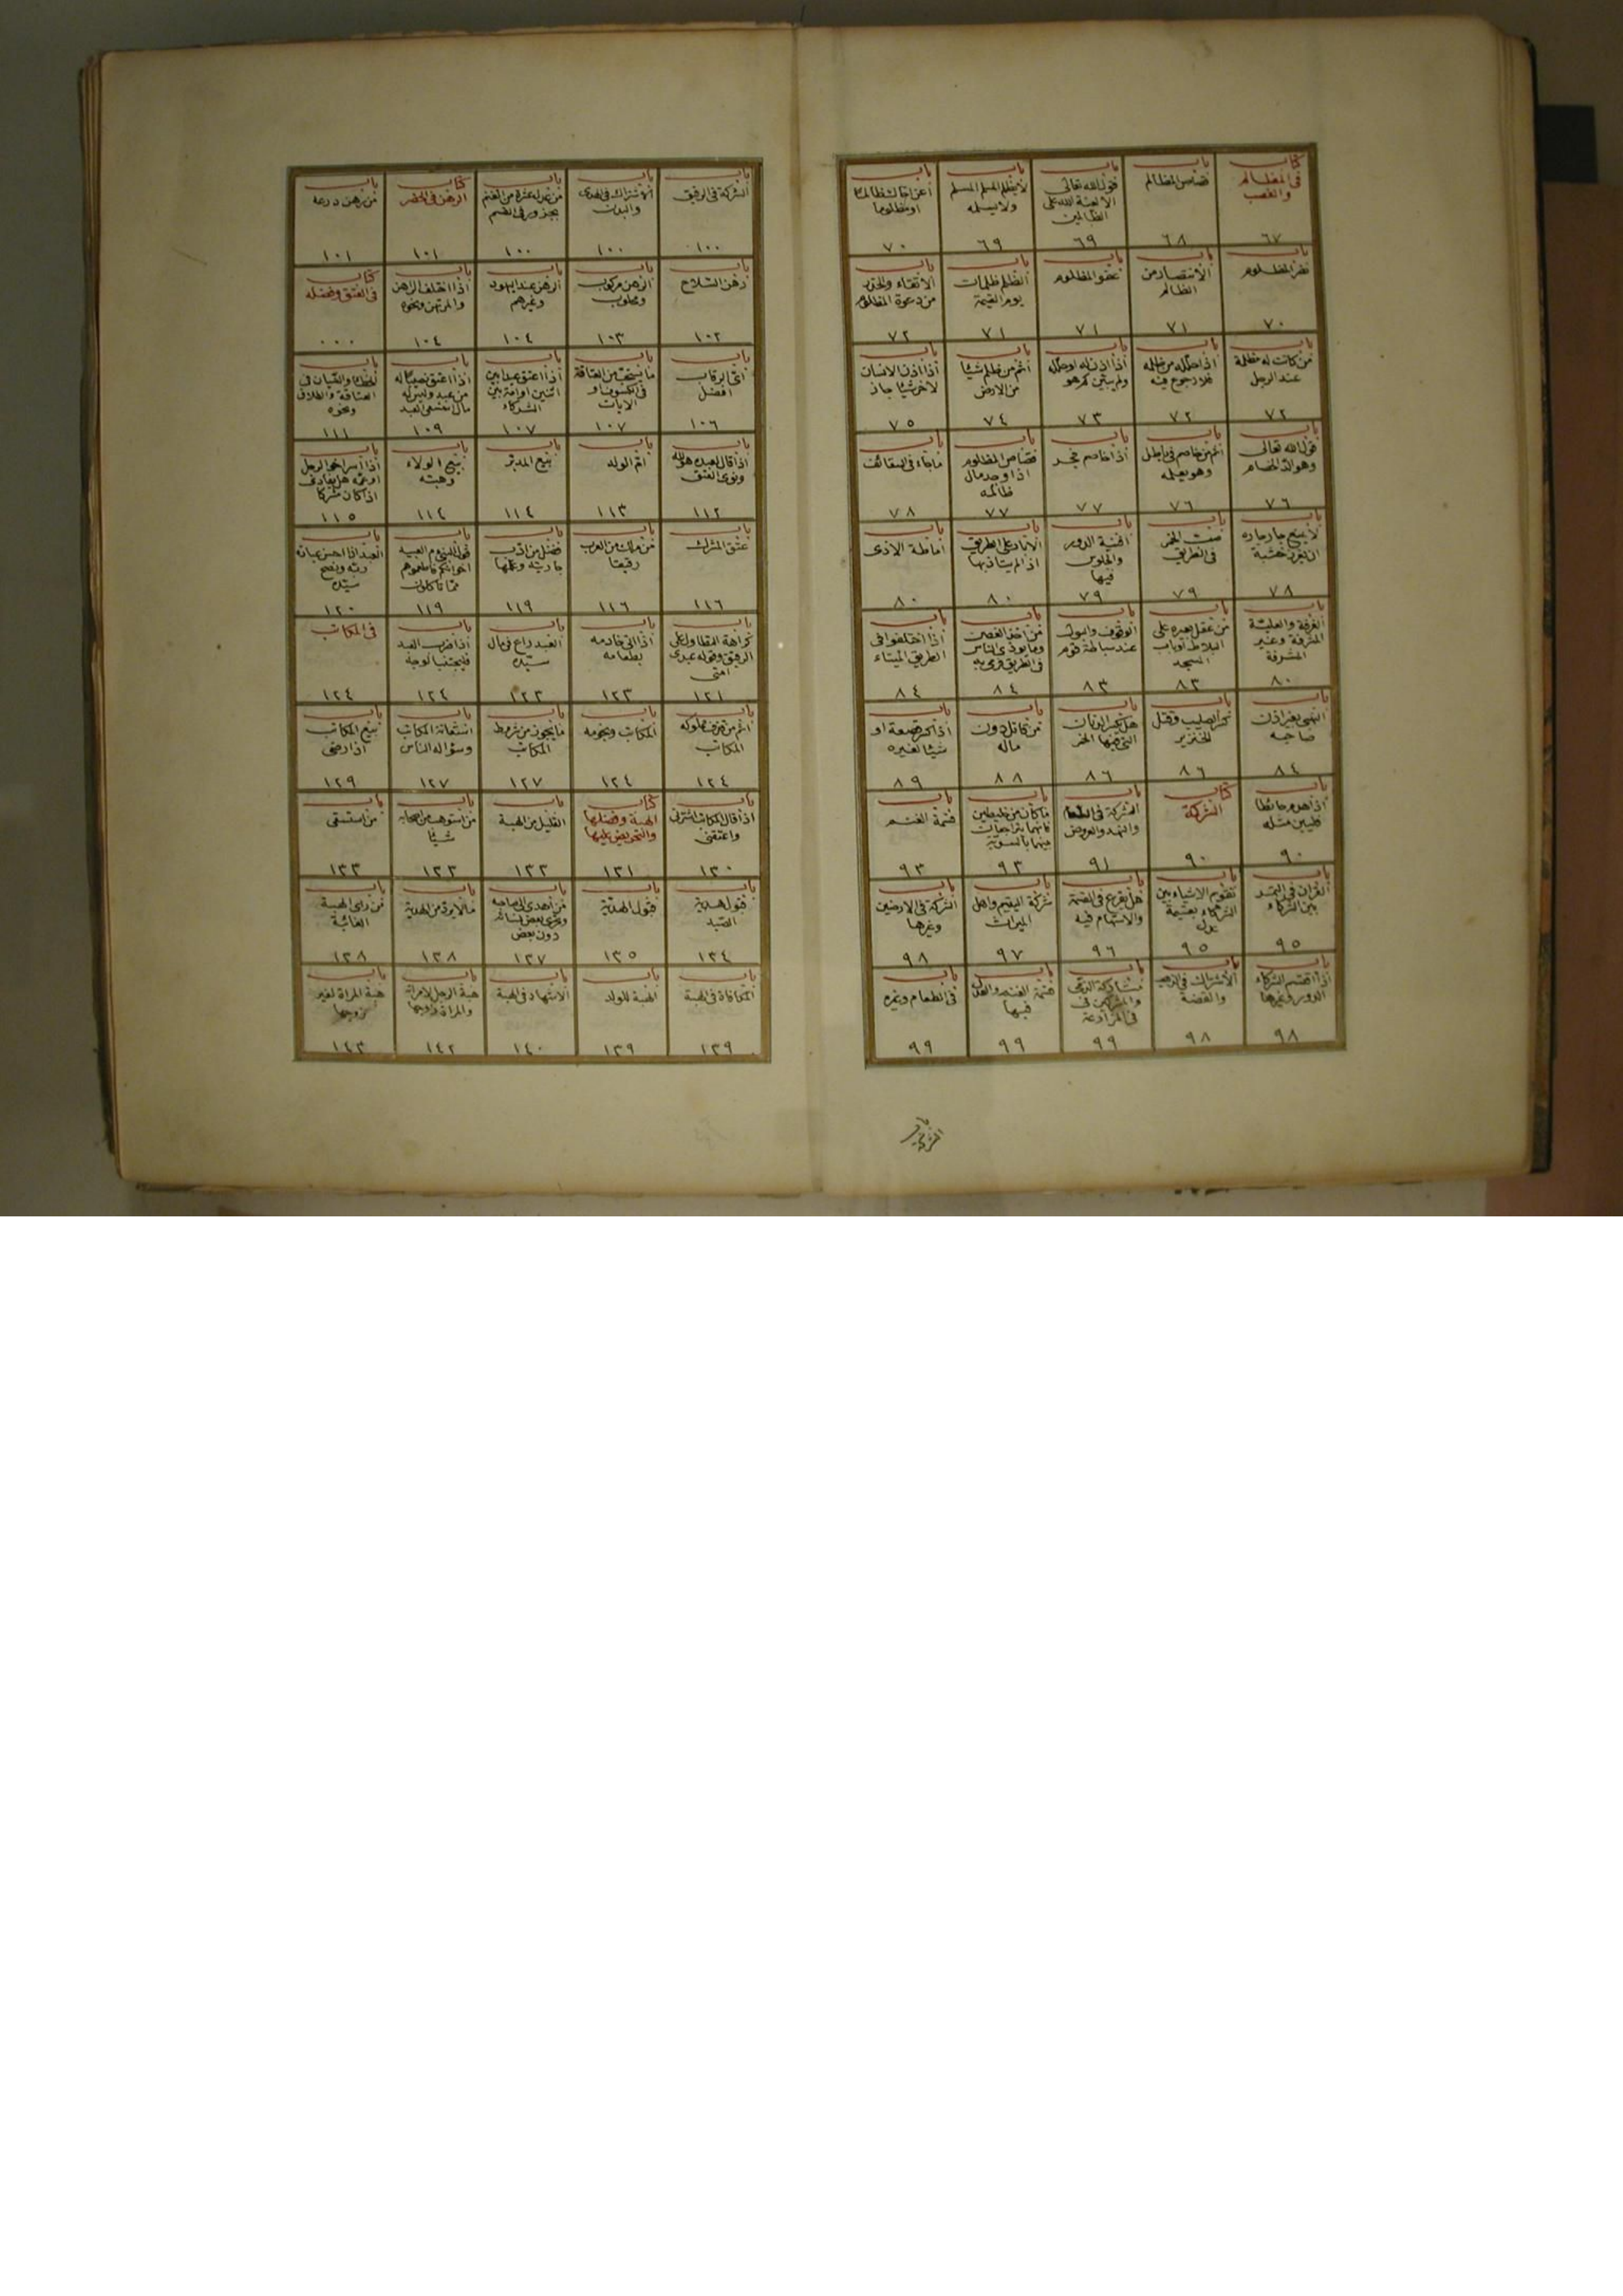 كتاب
في المظالم
والغصب
٦٧
باب
قصاص المظالم
٦٨
باب
قول الله تعالى
الا لعنة الله على
الظالمين
٦٩
باب
لا يظلم المسلم المسلم
ولا يسلمه
٦٩
باب
اعن اخاك ظالما
او مظلوما
٧٠
باب
نصر المظلوم
٧٠
باب
الانتصار من
الظالم
٧١
باب
عفو المظلوم
٧١
باب
الظلم ظلمات
يوم القيمة
٧١
باب
الاتقاء والحذر
من دعوة المظلوم
٧٢
باب
من كانت له مظلمة
عند الرجل
٧٢
باب
اذا حلله من ظلمه
فلا رجوع فيه
٧٢
باب
اذا اذن له او حلله
ولم يبين كم هو
٧٣
باب
اثم من ظلم شيئا
من الارض
٧٤
باب
اذا اذن الانسان
لاخر شيئا جاز
٧٥
باب
قول الله تعالى
وهو الد الخصام
٧٦
باب
اثم من خاصم في باطل
وهو يعلمه
٧٦
باب
اذا خاصم فجر
٧٧
باب
قصاص المظلوم
اذا وجد مال
ظالمه
٧٧
باب
ما جاء في السقائف
٧٨
باب
لا يمنع جار جاره
ان يغرز خشبة
٧٨
باب
صب الخمر
في الطريق
٧٩
باب
افنية الدور
والجلوس
فيها
٧٩
باب
الابار على الطريق
اذا لم يتاذ بها
٨٠
باب
اماطة الاذى
٨٠
باب
الغرفة والعلية
المشرفة وغير
المشرفة
٨٠
باب
من عقل بعيره على
البلاط او باب
المسجد
٨٣
باب
الوقوف والبول
عند سباطة قوم
٨٣
باب
من اخذ الغصن
وما يوذي الناس
في الطريق فرمى به
٨٤
باب
اذا اختلفوا في
الطريق الميتاء
٨٤
باب
النهبى بغير اذن
صاحبه
٨٤
باب
كسر الصليب وقتل
الخنزير
٨٦
باب
هل تكسر الدنان
التي فيها الخمر
٨٦
باب
من قاتل دون
ماله
٨٨
باب
اذا كسر قصعة او
شيئا لغيره
٨٩
باب
اذا هدم حائطا
فليبن مثله
٩٠
كتاب
الشركة
٩٠
باب
الشركة في الطعام
والنهد والعروض
٩١
باب
ما كان من خليطين
فانهما يتراجعان
بينهما بالسوية
٩٣
باب
قسمة الغنم
٩٣
باب
القران في التمر
بين الشركاء
٩٥
باب
تقويم الاشياء بين
الشركاء بقيمة
عدل
٩٥
باب
هل يقرع في القسمة
والاستهام فيه
٩٦
باب
شركة اليتيم واهل
الميراث
٩٧
باب
الشركة في الارضين
وغيرها
٩٨
باب
اذا اقتسم الشركاء
الدور وغيرها
٩٨
باب
الاشتراك في الذهب
والفضة
٩٨
باب
مشاركة الذمي
والمشركين في
في المزارعة
٩٩
باب
قسمة الغنم والعدل
فيها
٩٩
باب
في الطعام وغيره
٩٩
باب
الشركة في الرقيق
١٠٠
باب
الاشتراك في الهدي
والبدن
١٠٠
باب
من عدل عشرة من الغنم
بجزور في القسم
١٠٠
كتاب
الرهن في الحضر
١٠١
باب
من رهن درعه
١٠١
باب
رهن السلاح
١٠٢
باب
الرهن مركوب
ومحلوب
١٠٣
باب
الرهن عند اليهود
وغيرهم
١٠٤
باب
اذا اختلف الراهن
والمرتهن ونحوه
١٠٤
كتاب
في العتق وفضله
٠٠٠
باب
اي الرقاب
افضل
١٠٦
باب
ما يستحب من العتاقة
في الكسوف او
الايات
١٠٧
باب
اذا اعتق عبدا بين
اثنين او امة بين
الشركاء
١٠٧
باب
اذا اعتق نصيبا له
من عبد وليس له
مال استسعي العبد
١٠٩
باب
الخطاء والنسيان في
العتاقة والطلاق
ونحوه
١١١
باب
اذا قال لعبده هو لله
ونوى العتق
١١٢
باب
ام الولد
١١٣
باب
بيع المدبر
١١٤
باب
بيع الولاء
وهبته
١١٤
باب
اذا اسر اخو الرجل
او عمه هل يفادى
اذا كان مشركا
١١٥
باب
عتق المشرك
١١٦
باب
من ملك من العرب
رقيقا
١١٦
باب
فضل من ادب
جاريته وعلمها
١١٩
باب
قول النبي صم العبيد
اخوانكم فاطعموهم
مما تاكلون
١١٩
باب
العبد اذا احسن عبادة
ربه ونصح
سيده
١٢٠
باب
كراهة التطاول على
الرقيق وقوله عبدي
امتي
١٢١
باب
اذا اتى خادمه
بطعامه
١٢٣
باب
العبد راع في مال
سيده
١٢٣
باب
اذا ضرب العبد
فليجتنب الوجه
١٢٤
باب
في المكاتب
١٢٤
باب
اثم من قذف مملوكه
المكاتب
١٢٤
باب
المكاتب ونجومه
١٢٤
باب
ما يجوز من شروط
المكاتب
١٢٧
باب
استعانة المكاتب
وسؤاله الناس
١٢٧
باب
بيع المكاتب
اذا رضي
١٢٩
باب
اذا قال المكاتب اشترني
واعتقني
١٣٠
كتاب
الهبة وفضلها
والتحريض عليها
١٣١
باب
القليل من الهبة
١٣٢
باب
من استوهب من اصحابه
شيئا
١٣٣
باب
من استسقى
١٣٣
باب
قبول هدية
الصيد
١٣٤
باب
قبول الهدية
١٣٥
باب
من اهدى الى صاحبه
وتحرى بعض نسائه
دون بعض
١٣٧
باب
ما لا يرد من الهدية
١٣٨
باب
من راى الهبة
الغائبة
١٣٨
باب
المكافاة في الهبة
١٣٩
باب
الهبة للولد
١٣٩
باب
الاشهاد في الهبة
١٤٠
باب
هبة الرجل لامراته
والمراة لزوجها
١٤٢
باب
هبة المراة لغير
زوجها
١٤٣